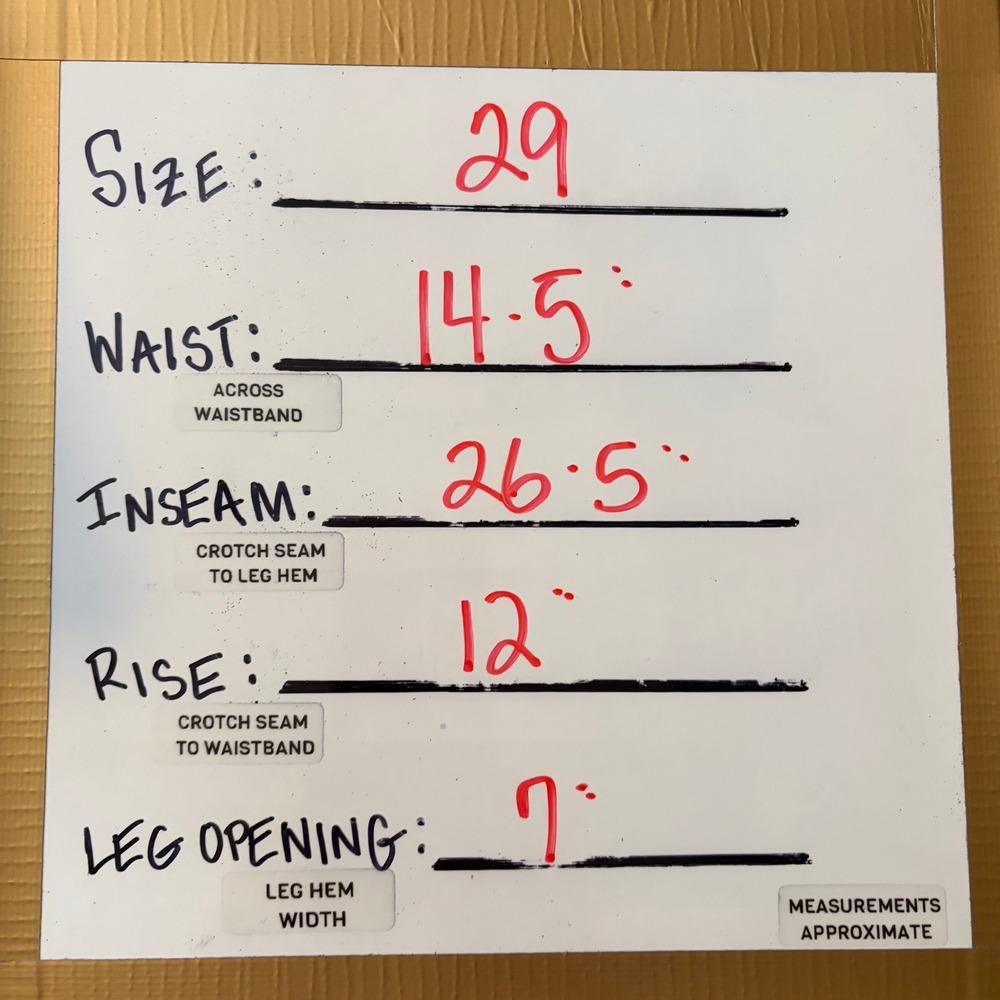 SIZE: 29
WAIST: 14.5"
ACROSS
WAISTBAND
INSEAM: 26.5"
CROTCH SEAM
TO LEG HEM
RISE: 12"
CROTCH SEAM
TO WAISTBAND
LEG OPENING: 7"
LEG HEM
WIDTH
MEASUREMENTS
APPROXIMATE